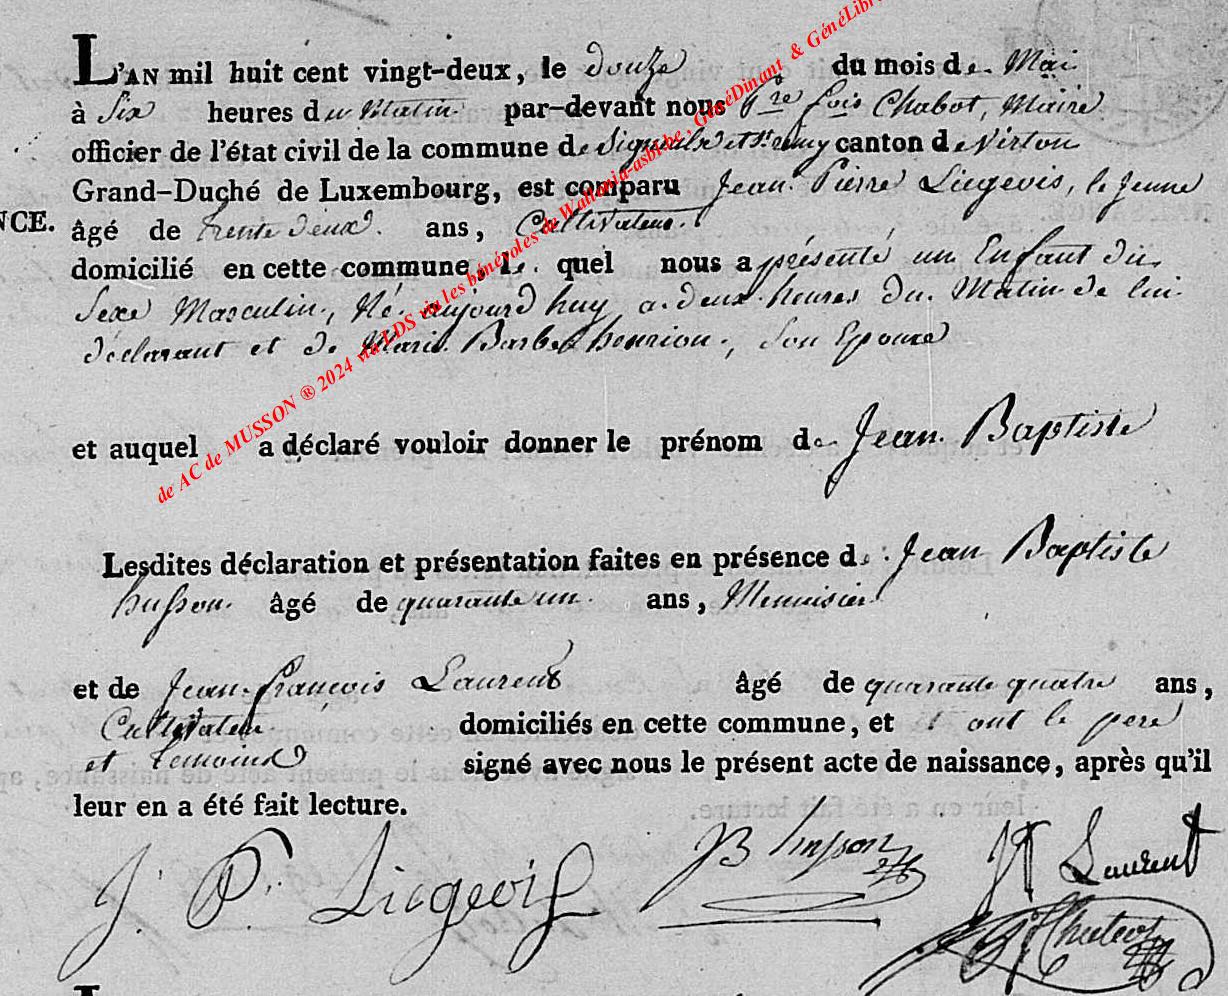 L'AN mil huit cent vingt-deux, le douze du mois de Mai
à Six heures du Matin par-devant nous Pre fois Chabot, Maire
officier de l'état civil de la commune de Signeulx et St remy canton de Virton
Grand-Duché de Luxembourg, est comparu Jean Pierre Liegeois, le Jeune
NCE. âgé de trente deux ans, Cultivateur
domicilié en cette commune, le quel nous a présenté un Enfant du
Sexe Masculin, Né aujourd huy a deux heures du Matin de lui
déclarant et de Marie Barbe henrion, Son Epouse
et auquel a déclaré vouloir donner le prénom de Jean Baptiste
Lesdites déclaration et présentation faites en présence de Jean Baptiste
husson âgé de quarante un ans, Menuisier
et de Jean françois Laurent âgé de quarante quatre ans,
Cultivateur domiciliés en cette commune, et ont le pere
et temoins signé avec nous le présent acte de naissance, après qu'il
leur en a été fait lecture.
J. P. Liegeois JB husson Jf Laurent
de AC de MUSSON ® 2024 via LDS via les bénévoles de Wallonia-asbl.be, GénéDinant & GénéLibr